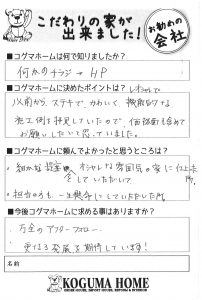 こだわりの家が
出来ました!
お勧めの
会社
■コグマホームは何で知りましたか?
何かのチラシ → HP
■コグマホームに決めたポイントは?
以前から、ステキで、かわいく、機能的な
施工例を拝見していたので、価格面も含めて
お願いしたいと思っていました。
■コグマホームに頼んでよかったと思うところは?
・細かな提案
オシャレな雰囲気の家に仕上
していただいて
・担当の方も、一生懸命にしていただいた所
■今後コグマホームに求める事はありますか?
・万全のアフターフォロー
更なる発展を期待しています!
名前
KOGUMA HOME
ORDER HOUSE, IMPORT HOUSE, REFORM & INTERIOR